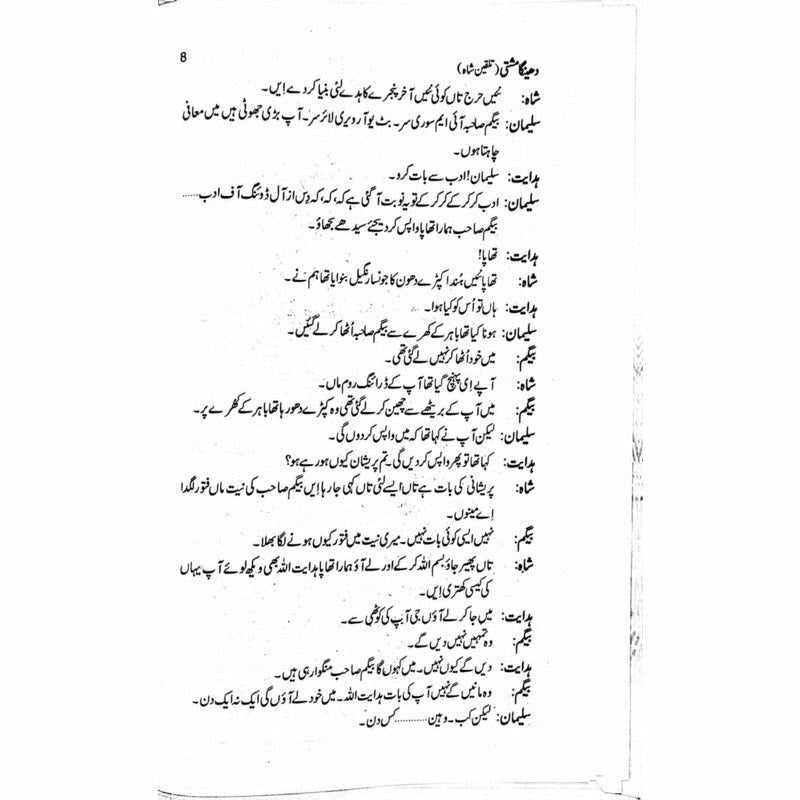 8
دھینگا مشتی (تلقین شاہ)
شاہ: نئیں حرج تاں کوئی نئیں آخر پنجرے کاہدے لئی بنیا کردے ایں۔
سلیمان: بیگم صاحبہ آئی ایم سوری سر۔ بٹ یو آر ویری لائر سر۔ آپ بڑی جھوٹی ہیں میں معافی
چاہتا ہوں۔
ہدایت: سلیمان! ادب سے بات کرو۔
سلیمان: ادب کر کر کے کر کر کے تو یہ نوبت آ گئی ہے کہ، کہ، کہ دِس از آل ڈوئنگ آف ادب......
بیگم صاحب ہمارا تھاپا واپس کر دیجئے سیدھے سبھاؤ۔
ہدایت: تھاپا!
شاہ: تھاپا نئیں ہُندا کپڑے دھون کا جونسا رنگیل بنوایا تھا ہم نے۔
ہدایت: ہاں تو اُس کو کیا ہوا۔
سلیمان: ہونا کیا تھا باہر کے کھرے سے بیگم صاحبہ اُٹھا کر لے گئیں۔
بیگم: میں خود اُٹھا کر نہیں لے گئی تھی۔
شاہ: آپے اِی پہنچ گیا تھا آپ کے ڈرائنگ روم ماں۔
بیگم: میں آپ کے بریٹھے سے چھین کر لے گئی تھی وہ کپڑے دھو رہا تھا باہر کے کھرے پر۔
سلیمان: لیکن آپ نے کہا تھا کہ میں واپس کر دوں گی۔
ہدایت: کہا تھا تو پھر واپس کر دیں گی۔ تم پریشان کیوں ہو رہے ہو؟
شاہ: پریشانی کی بات ہے تاں ایسے لئی تاں کہی جا رہا ایں بیگم صاحب کی نیت ماں فتور لگدا
اے مینوں۔
بیگم: نہیں ایسی کوئی بات نہیں۔ میری نیت میں فتور کیوں ہونے لگا بھلا۔
شاہ: تاں پھیر جاؤ بسم اللہ کر کے اور لے آؤ ہمارا تھاپا ہدایت اللہ بھی ویکھ لوئے آپ یہاں
کی کیسی کھتری ایں۔
ہدایت: میں جا کر لے آؤں جی آپ کی کوٹھی سے۔
بیگم: وہ تمہیں نہیں دیں گے۔
ہدایت: دیں گے کیوں نہیں۔ میں کہوں گا بیگم صاحب منگوا رہی ہیں۔
بیگم: وہ مانیں گے نہیں آپ کی بات ہدایت اللہ۔ میں خود لے آؤں گی ایک نہ ایک دن۔
سلیمان: لیکن کب۔ وہین............ کس دن۔